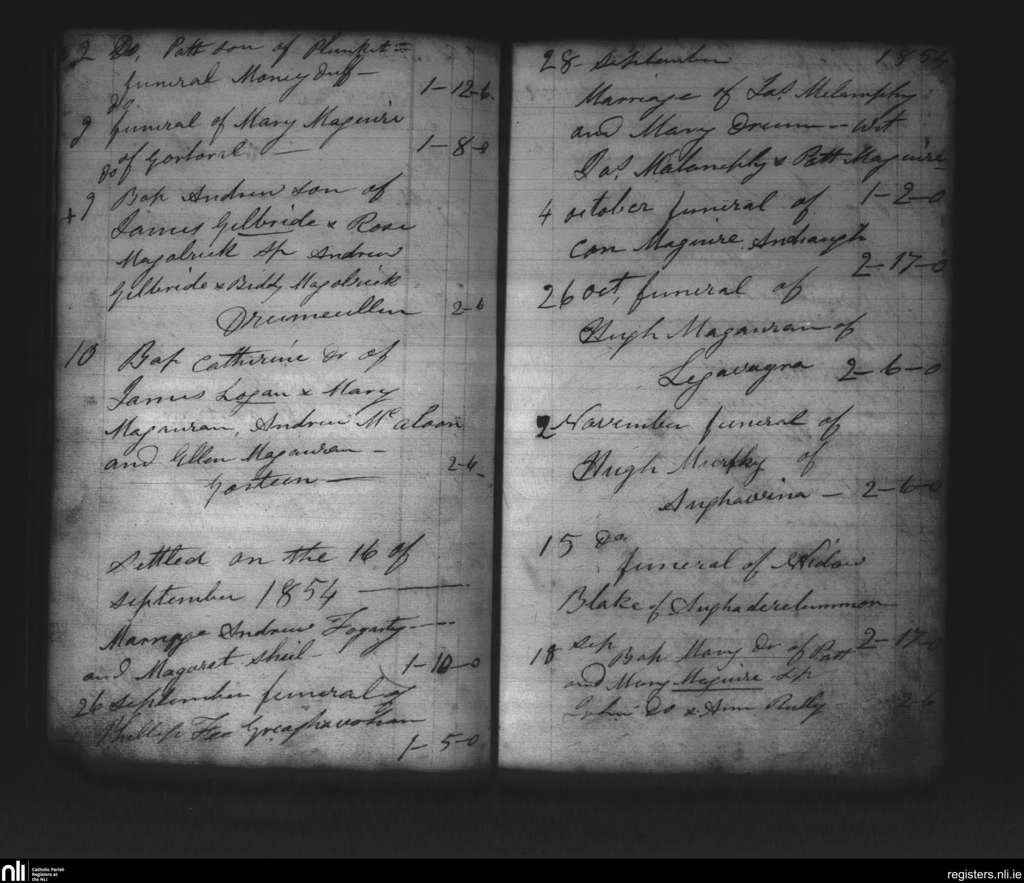 9 Do, Patt son of Plunket
funeral Money Duff
1-12-6
do
9 funeral of Mary Maguire
do of Gortoral 1-8-0
+9 Bap Andrew son of
James Gilbride & Rose
Magolrick Sp Andrew
Gilbride & Biddy Magolrick
2-6
10 Bap Catherine Dr of
James Logan & Mary
Magauran, Andrew Mc aloon
and Ellen Magauran -
2-6
Gorteen
Settled on the 16 of
September 1854
Marrage Andrew Fogarty
and Magaret Sheil 1-10-0
26 September funeral of
Phillip Fee
1-5-0
28 September 1854
Marriage of Jas. Melamphy
and Mary Drum -- Wit
Jas. Malamphy & Patt Maguire
1-2-0
4 october funeral of
Con Maguire
2-17-0
26 oct, funeral of
Hugh Magauran of
Legavagra 2-6-0
2 November funeral of
Hugh Murphy of
2-6-0
15 Do.
funeral of Widow
Blake of
2-17-0
18 Sep Bap Mary Dr of Patt
and Mary Maguire Sp
John Do & Ann Reilly 2-6
nli
Catholic Parish
Registers at
the NLI
registers.nli.ie